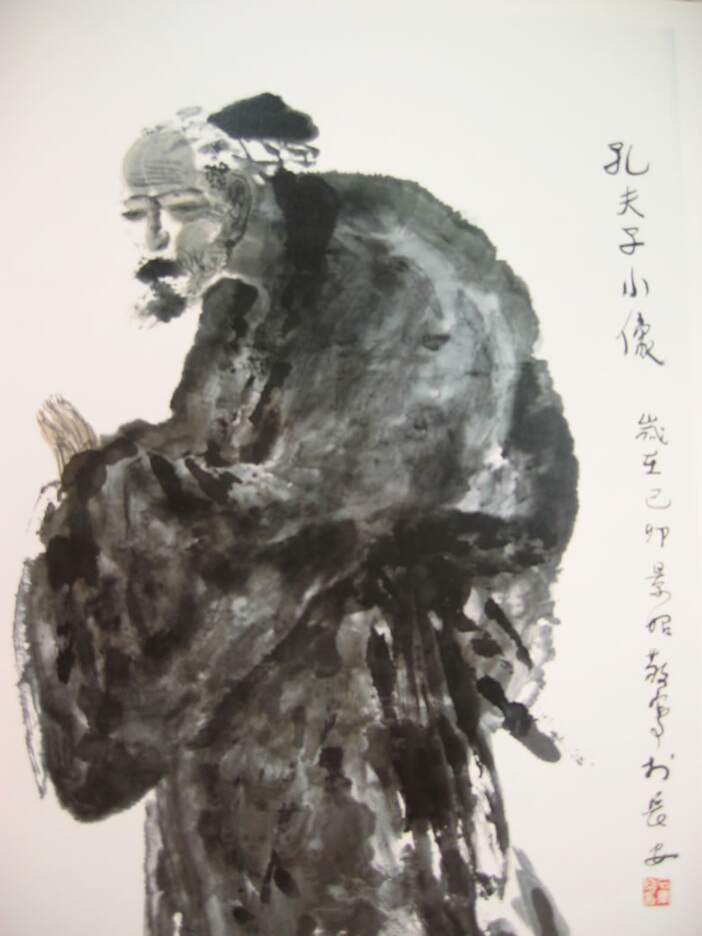 孔夫子小像 歲在己卯景昭敬寫於長安